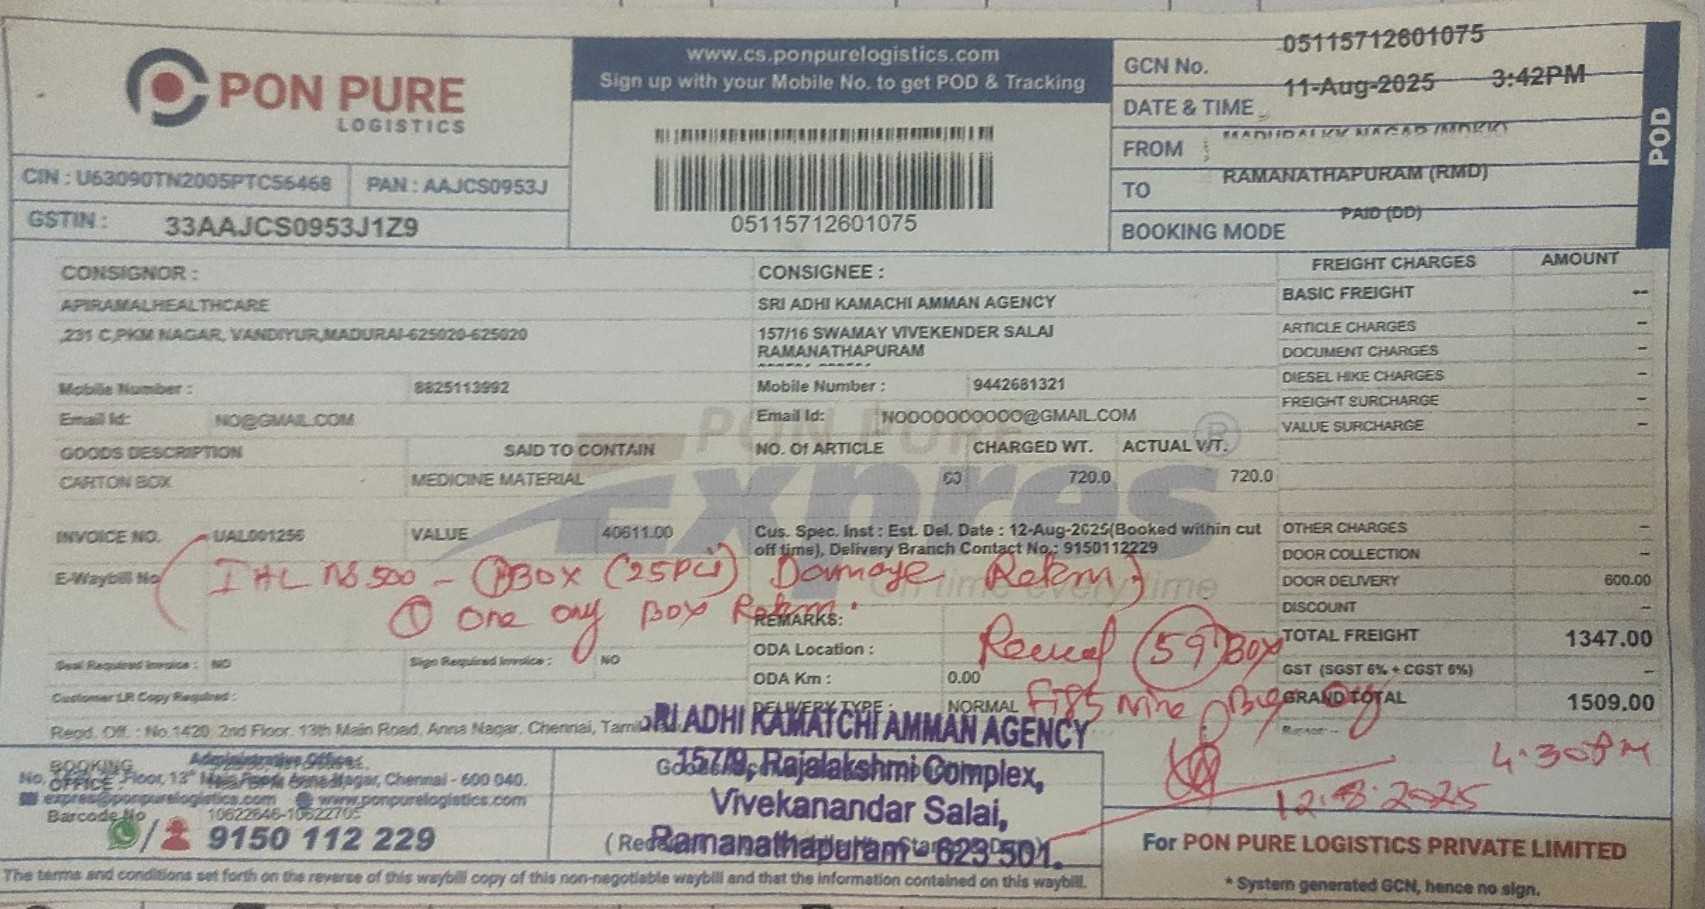 PON PURE
LOGISTICS
www.cs.ponpurelogistics.com
Sign up with your Mobile No. to get POD & Tracking
05115712601075
GCN No. 05115712601075
DATE & TIME 11-Aug-2025 3:42PM
FROM
TO RAMANATHAPURAM (RMD)
BOOKING MODE PAID (DD)
POD
CIN : U63090TN2005PTC56468 PAN : AAJCS0953J
GSTIN : 33AAJCS0953J1Z9
CONSIGNOR :
APIRAMALHEALTHCARE
,231 C,PKM NAGAR, VANDIYUR,MADURAI-625020-625020
Mobile Number : 8825113992
Email Id: NO@GMAIL.COM
CONSIGNEE :
SRI ADHI KAMACHI AMMAN AGENCY
157/16 SWAMAY VIVEKENDER SALAI
RAMANATHAPURAM
Mobile Number : 9442681321
Email Id: NOOOOOOOOOO@GMAIL.COM
GOODS DESCRIPTION SAID TO CONTAIN NO. Of ARTICLE CHARGED WT. ACTUAL WT.
CARTON BOX MEDICINE MATERIAL 60 720.0 720.0
INVOICE NO. UAL001256 VALUE 40611.00
Cus. Spec. Inst : Est. Del. Date : 12-Aug-2025(Booked within cut
off time), Delivery Branch Contact No.: 9150112229
E-Waybill No
IHL NS 500 - 1 BOX (25PCs) Damage Return
① one only Box Return.
REMARKS:
ODA Location :
ODA Km : 0.00
DELIVERY TYPE : NORMAL
(59) BOX
Seal Required Invoice : NO Sign Required Invoice : NO
Customer LR Copy Required :
FREIGHT CHARGES AMOUNT
BASIC FREIGHT --
ARTICLE CHARGES -
DOCUMENT CHARGES -
DIESEL HIKE CHARGES -
FREIGHT SURCHARGE -
VALUE SURCHARGE -
OTHER CHARGES -
DOOR COLLECTION -
DOOR DELIVERY 600.00
DISCOUNT -
TOTAL FREIGHT 1347.00
GST (SGST 6% + CGST 6%) -
GRAND TOTAL 1509.00
4.30PM
12.8.2025
Regd. Off. : No.1420, 2nd Floor, 13th Main Road, Anna Nagar, Chennai,
SRI ADHI KAMATCHI AMMAN AGENCY
157/9, Rajalakshmi Complex,
Vivekanandar Salai,
Ramanathapuram - 623 501.
BOOKING OFFICE
Administrative Office :
Anna Nagar, Chennai - 600 040.
expres@ponpurelogistics.com www.ponpurelogistics.com
Barcode No 10622646-10622705
9150 112 229
For PON PURE LOGISTICS PRIVATE LIMITED
* System generated GCN, hence no sign.
The terms and conditions set forth on the reverse of this waybill copy of this non-negotiable waybill and that the information contained on this waybill.